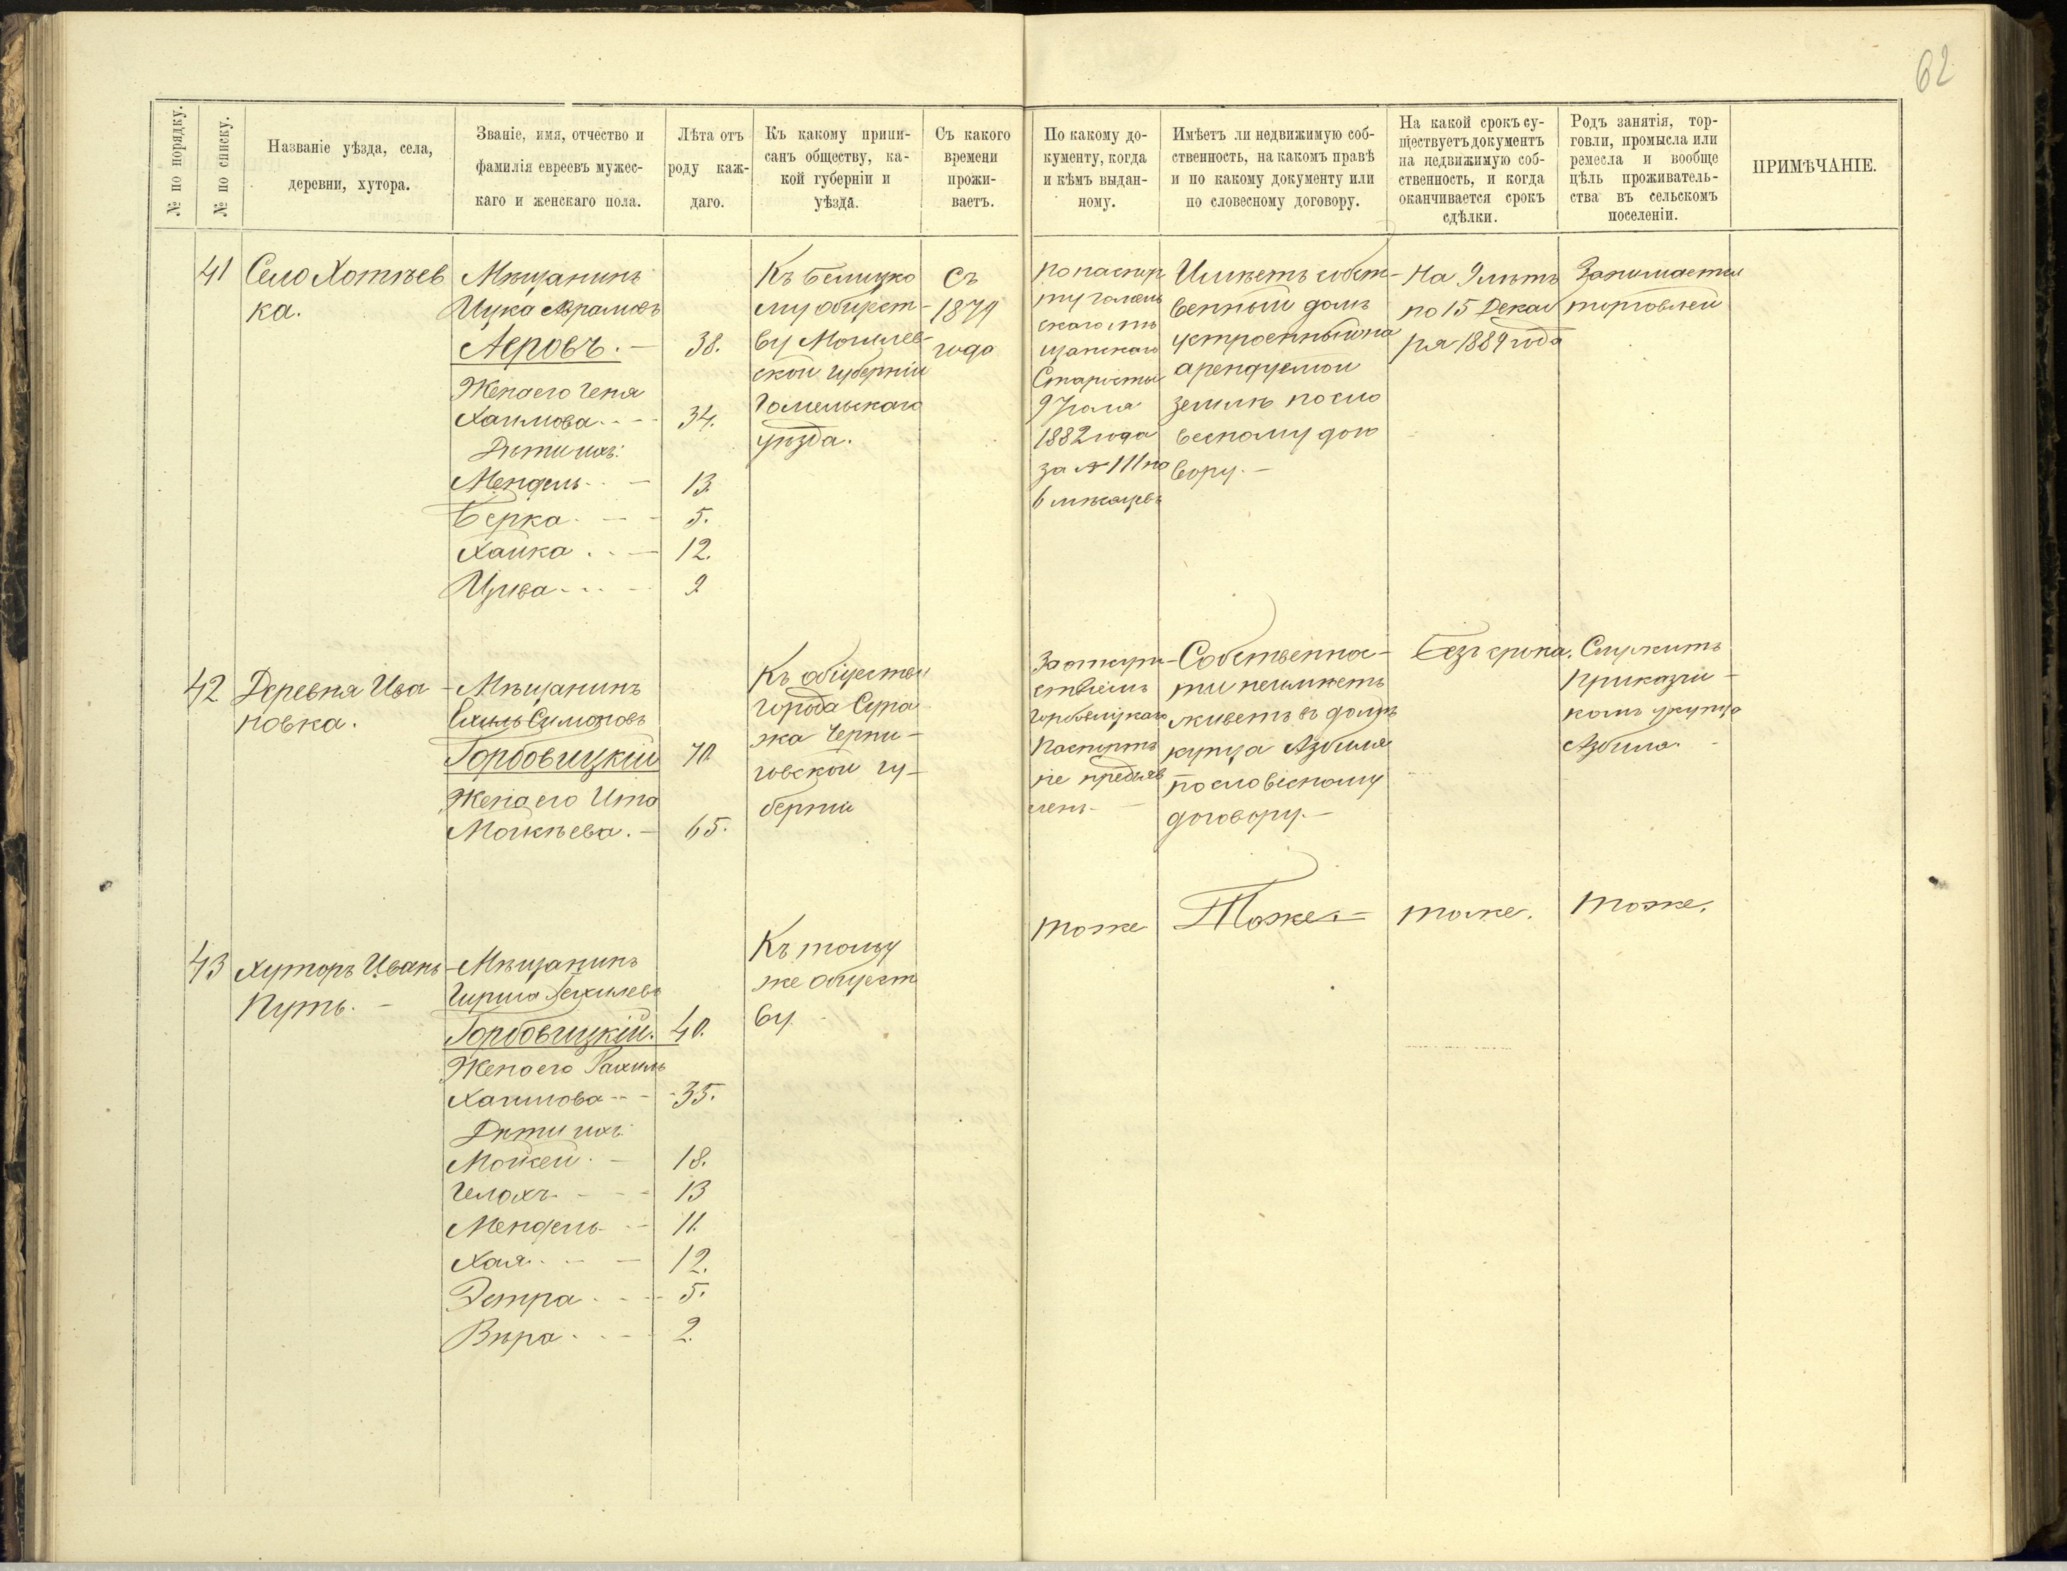 62
№ по порядку.
№ по списку.
Названіе уѣзда, села,
деревни, хутора.
Званіе, имя, отчество и
фамилія евреевъ мужес-
каго и женскаго пола.
Лѣта отъ
роду каж-
даго.
Къ какому припи-
санъ обществу, ка-
кой губерніи и
уѣзда.
Съ какого
времени
прожи-
ваетъ.
По какому до-
кументу, когда
и кѣмъ выдан-
ному.
Имѣетъ ли недвижимую соб-
ственность, на какомъ правѣ
и по какому документу или
по словесному договору.
На какой срокъ су-
ществуетъ документъ
на недвижимую соб-
ственность, и когда
оканчивается срокъ
сдѣлки.
Родъ занятія, тор-
говли, промысла или
ремесла и вообще
цѣль проживатель-
ства въ сельскомъ
поселеніи.
ПРИМѢЧАНІЕ.
41
Село Хотѣев
ка.
Мѣщанинъ
Абрамовъ
Аеровъ. 38.
Жена его Геня
Хаимова 34.
Дѣти ихъ:
Мендель 13.
Берка 5.
Хайка 12.
Цива 2
Къ Бѣлицко
му общест-
ву Могилев-
ской губерніи
Гомельскаго
уѣзда.
Съ
1879
года
По паспор
ту
скаго мѣ
щанскаго
Старосты
9 Іюля
1882 года
за № 111 на
6 мѣсяцевъ
Имѣетъ собст-
венный домъ
устроенный на
арендуемой
землѣ по сло
весному дого
вору.
На 9 лѣтъ
по 15 Декаб
ря 1889 года
Занимается
торговлей
42
Деревня Ива
новка.
Мѣщанинъ
Симоновъ
Горбовицкій 70
Жена его Ита
Моисѣева. 65.
Къ обществу
города Сура
жа Черни-
говской гу-
берніи
За отсут-
ствіемъ
Горбовицкаго
Паспортъ
не предъяв
ленъ
Собственнос-
ти не имѣетъ
живетъ въ домѣ
купца Азбиля
по словесному
договору.
Безъ срока.
Служитъ
Приказчи-
комъ у купца
Азбиля.
43
Хуторъ Иванъ
Путь.
Мѣщанинъ
Гирша
Горбовицкій. 40.
Жена его Рахиль
Хаимова 35.
Дѣти ихъ
Мойсей 18.
13
Мендель 11.
Хая 12.
Эстра 5.
Вѣра 2.
Къ тому
же общест
ву
тоже
Тоже.
тоже.
тоже.